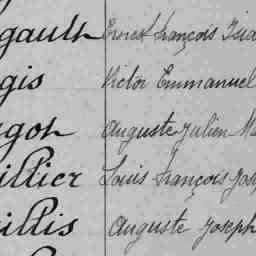 gault Ernest François Isid
gis Victor Emmanuel
got Auguste Julien Ma
illier Louis François Jos
illis Auguste Joseph